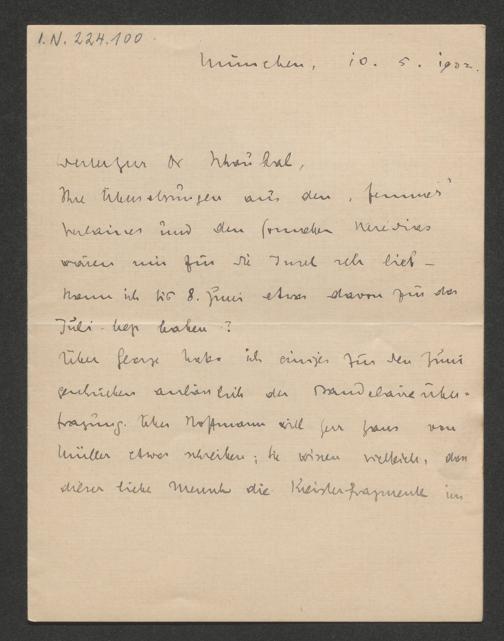 I.N. 224.100
München, 10. 5. 1902.
Werter Herr Dr Schaukal,
Ihre Übersetzungen aus den „femmes"
Verlaines und den Sonneten Heredias
wären mir für die Insel sehr lieb –
Kann ich bis 8. Juni etwas davon für das
Juli-heft haben?
Über George habe ich einiges für den Juni
geschrieben anlässlich der Baudelaireüber-
tragung. Über Hoffmann will Herr Hans von
Müller etwas schreiben; Sie wissen vielleicht, dass
dieser liebe Mensch die Kreislerfragmente im